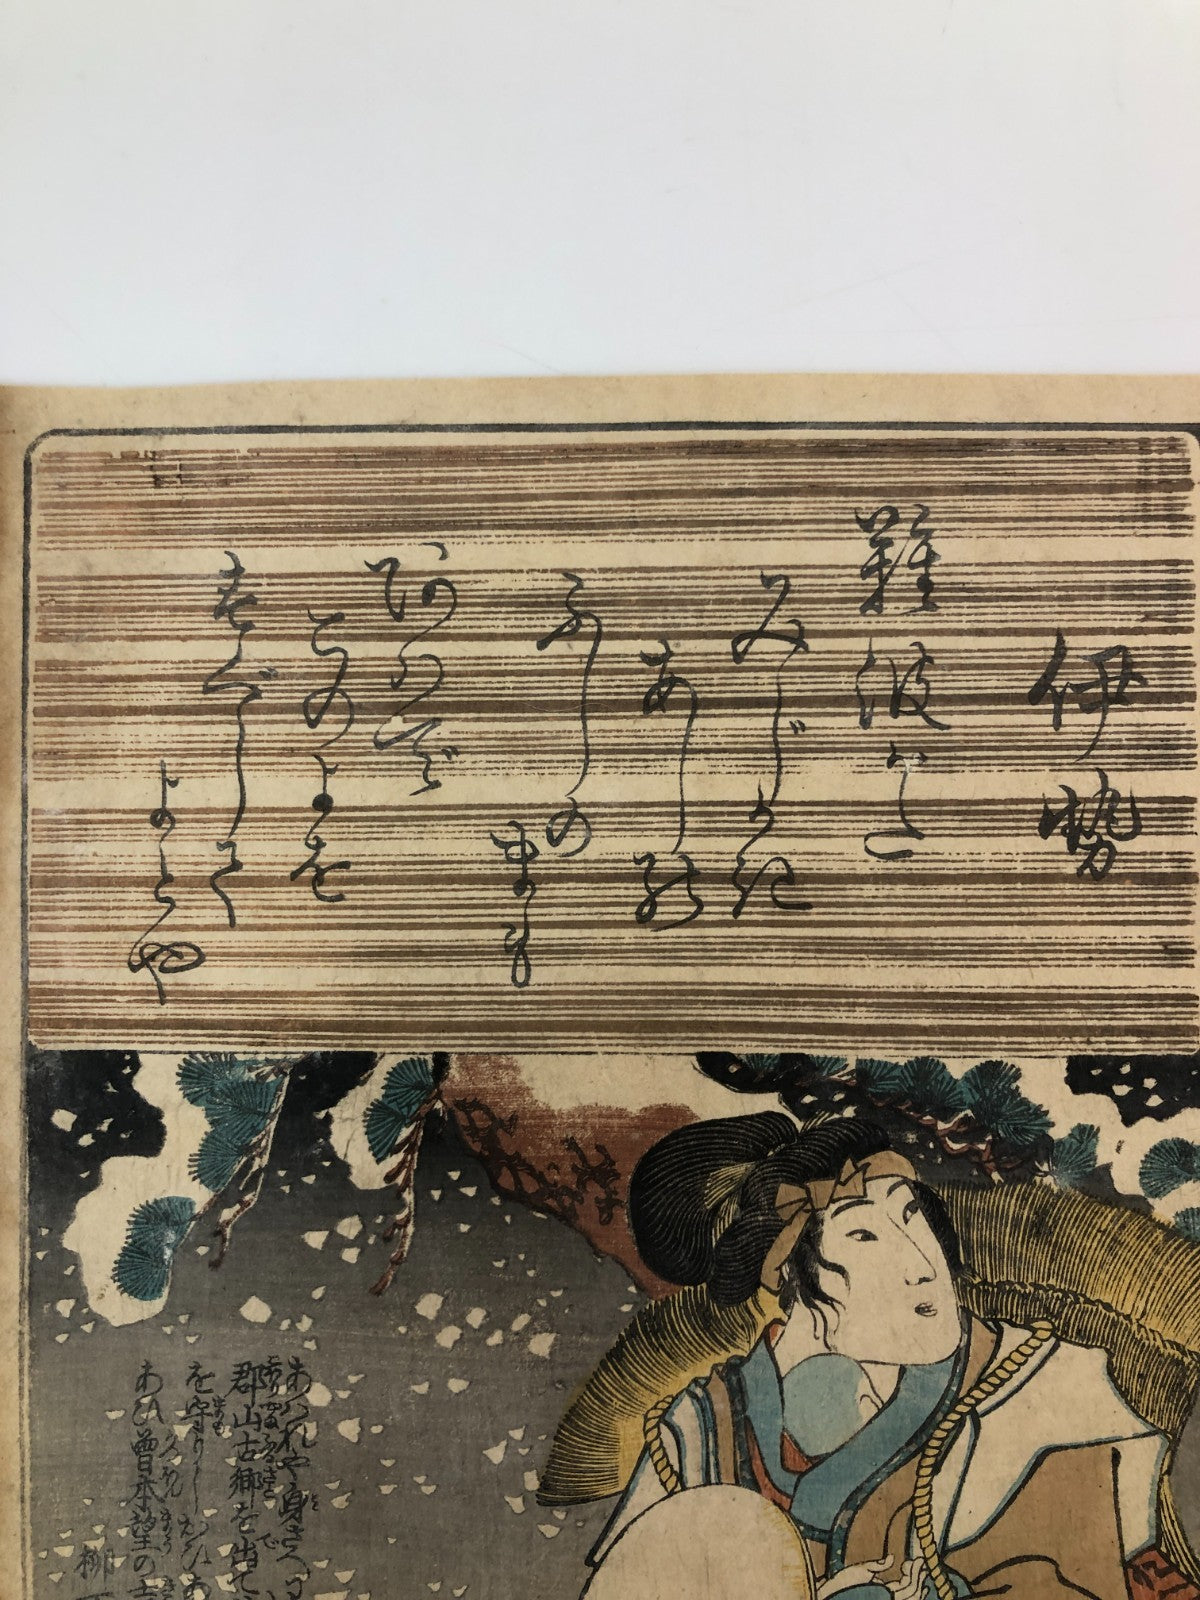 伊勢
難波がた
みじかき
あしの
ふしの
まも
あはで
このよを
すぐして
よとや
あはれや身さへ
郡山古郷を出て
を守りし
あひ
柳